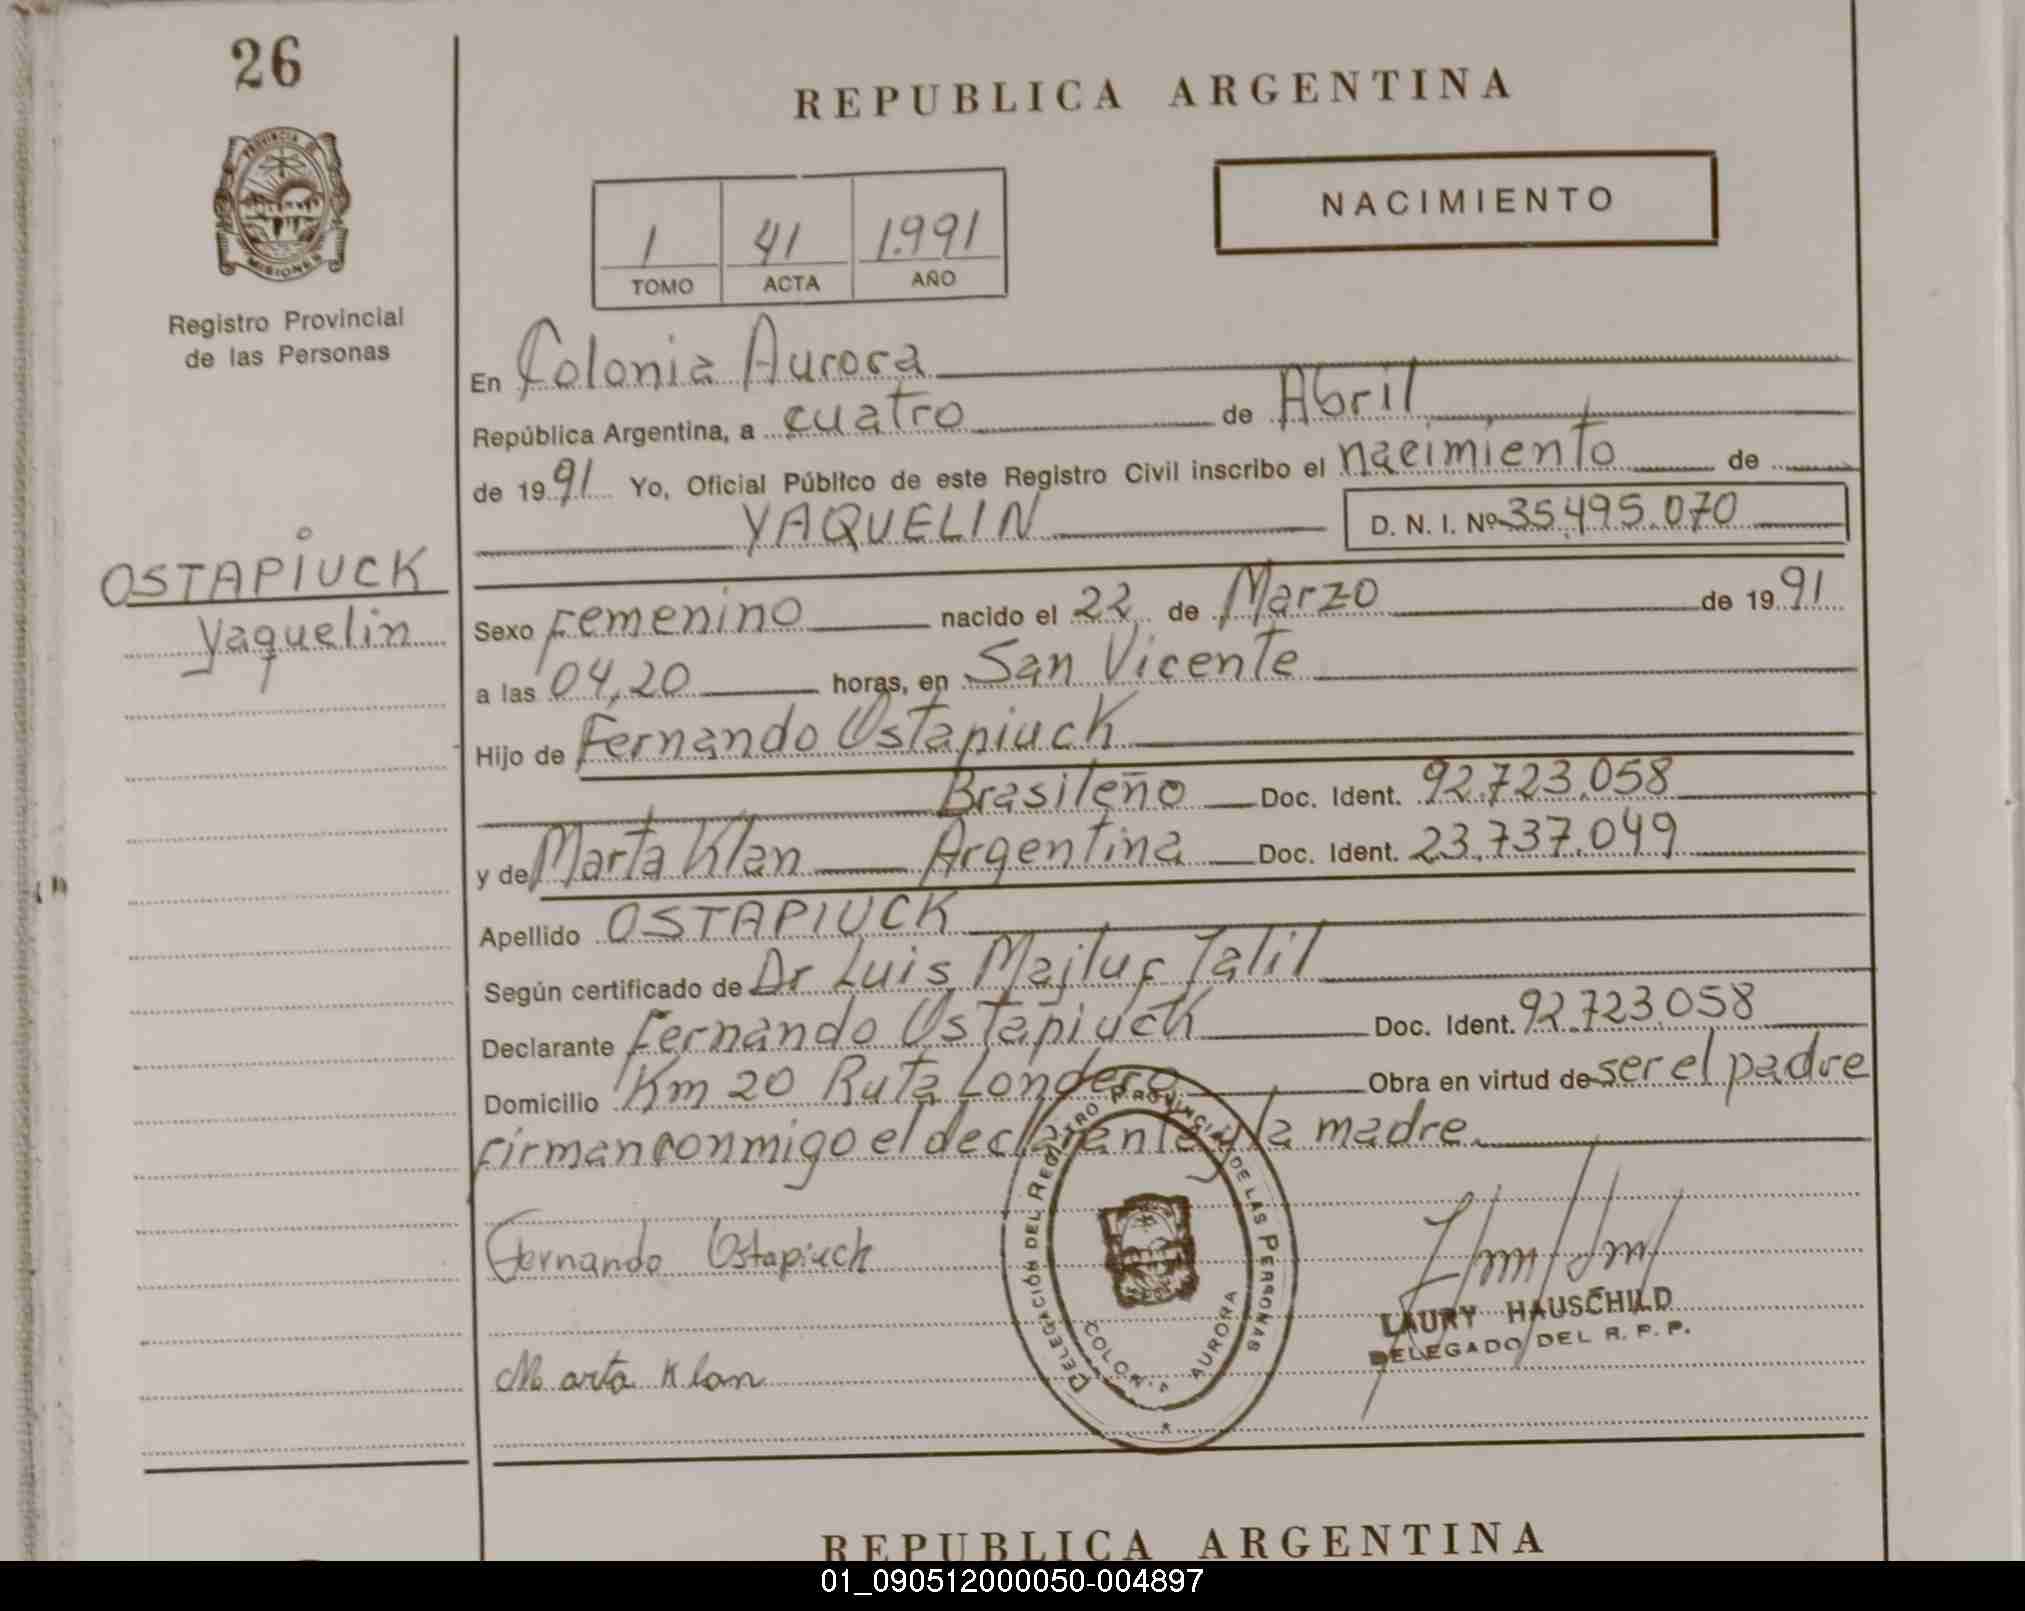 26
PROVINCIA DE
MISIONES
Registro Provincial
de las Personas
OSTAPIUCK
Yaquelin
REPUBLICA ARGENTINA
NACIMIENTO
1 41 1.991
TOMO ACTA AÑO
En Colonia Aurora
República Argentina, a cuatro de Abril
de 1991 Yo, Oficial Público de este Registro Civil inscribo el nacimiento de
YAQUELIN D. N. I. Nº 35.495.070
Sexo Femenino nacido el 22 de Marzo de 1991
a las 04,20 horas, en San Vicente
Hijo de Fernando Ostapiuck
Brasileño Doc. Ident. 92.723.058
y de Marta Klan Argentina Doc. Ident. 23.737.049
Apellido OSTAPIUCK
Según certificado de Dr Luis Majluf Jalil
Declarante Fernando Ostapiuck Doc. Ident. 92.723.058
Domicilio Km 20 Ruta Londero Obra en virtud de ser el padre
firman conmigo el declarante y la madre.
Fernando Ostapiuck
Marta Klan
DELEGACIÓN DEL REGISTRO PROVINCIAL DE LAS PERSONAS
COLONIA AURORA
LAURY HAUSCHILD
DELEGADO DEL R. P. P.
REPUBLICA ARGENTINA
01_090512000050-004897